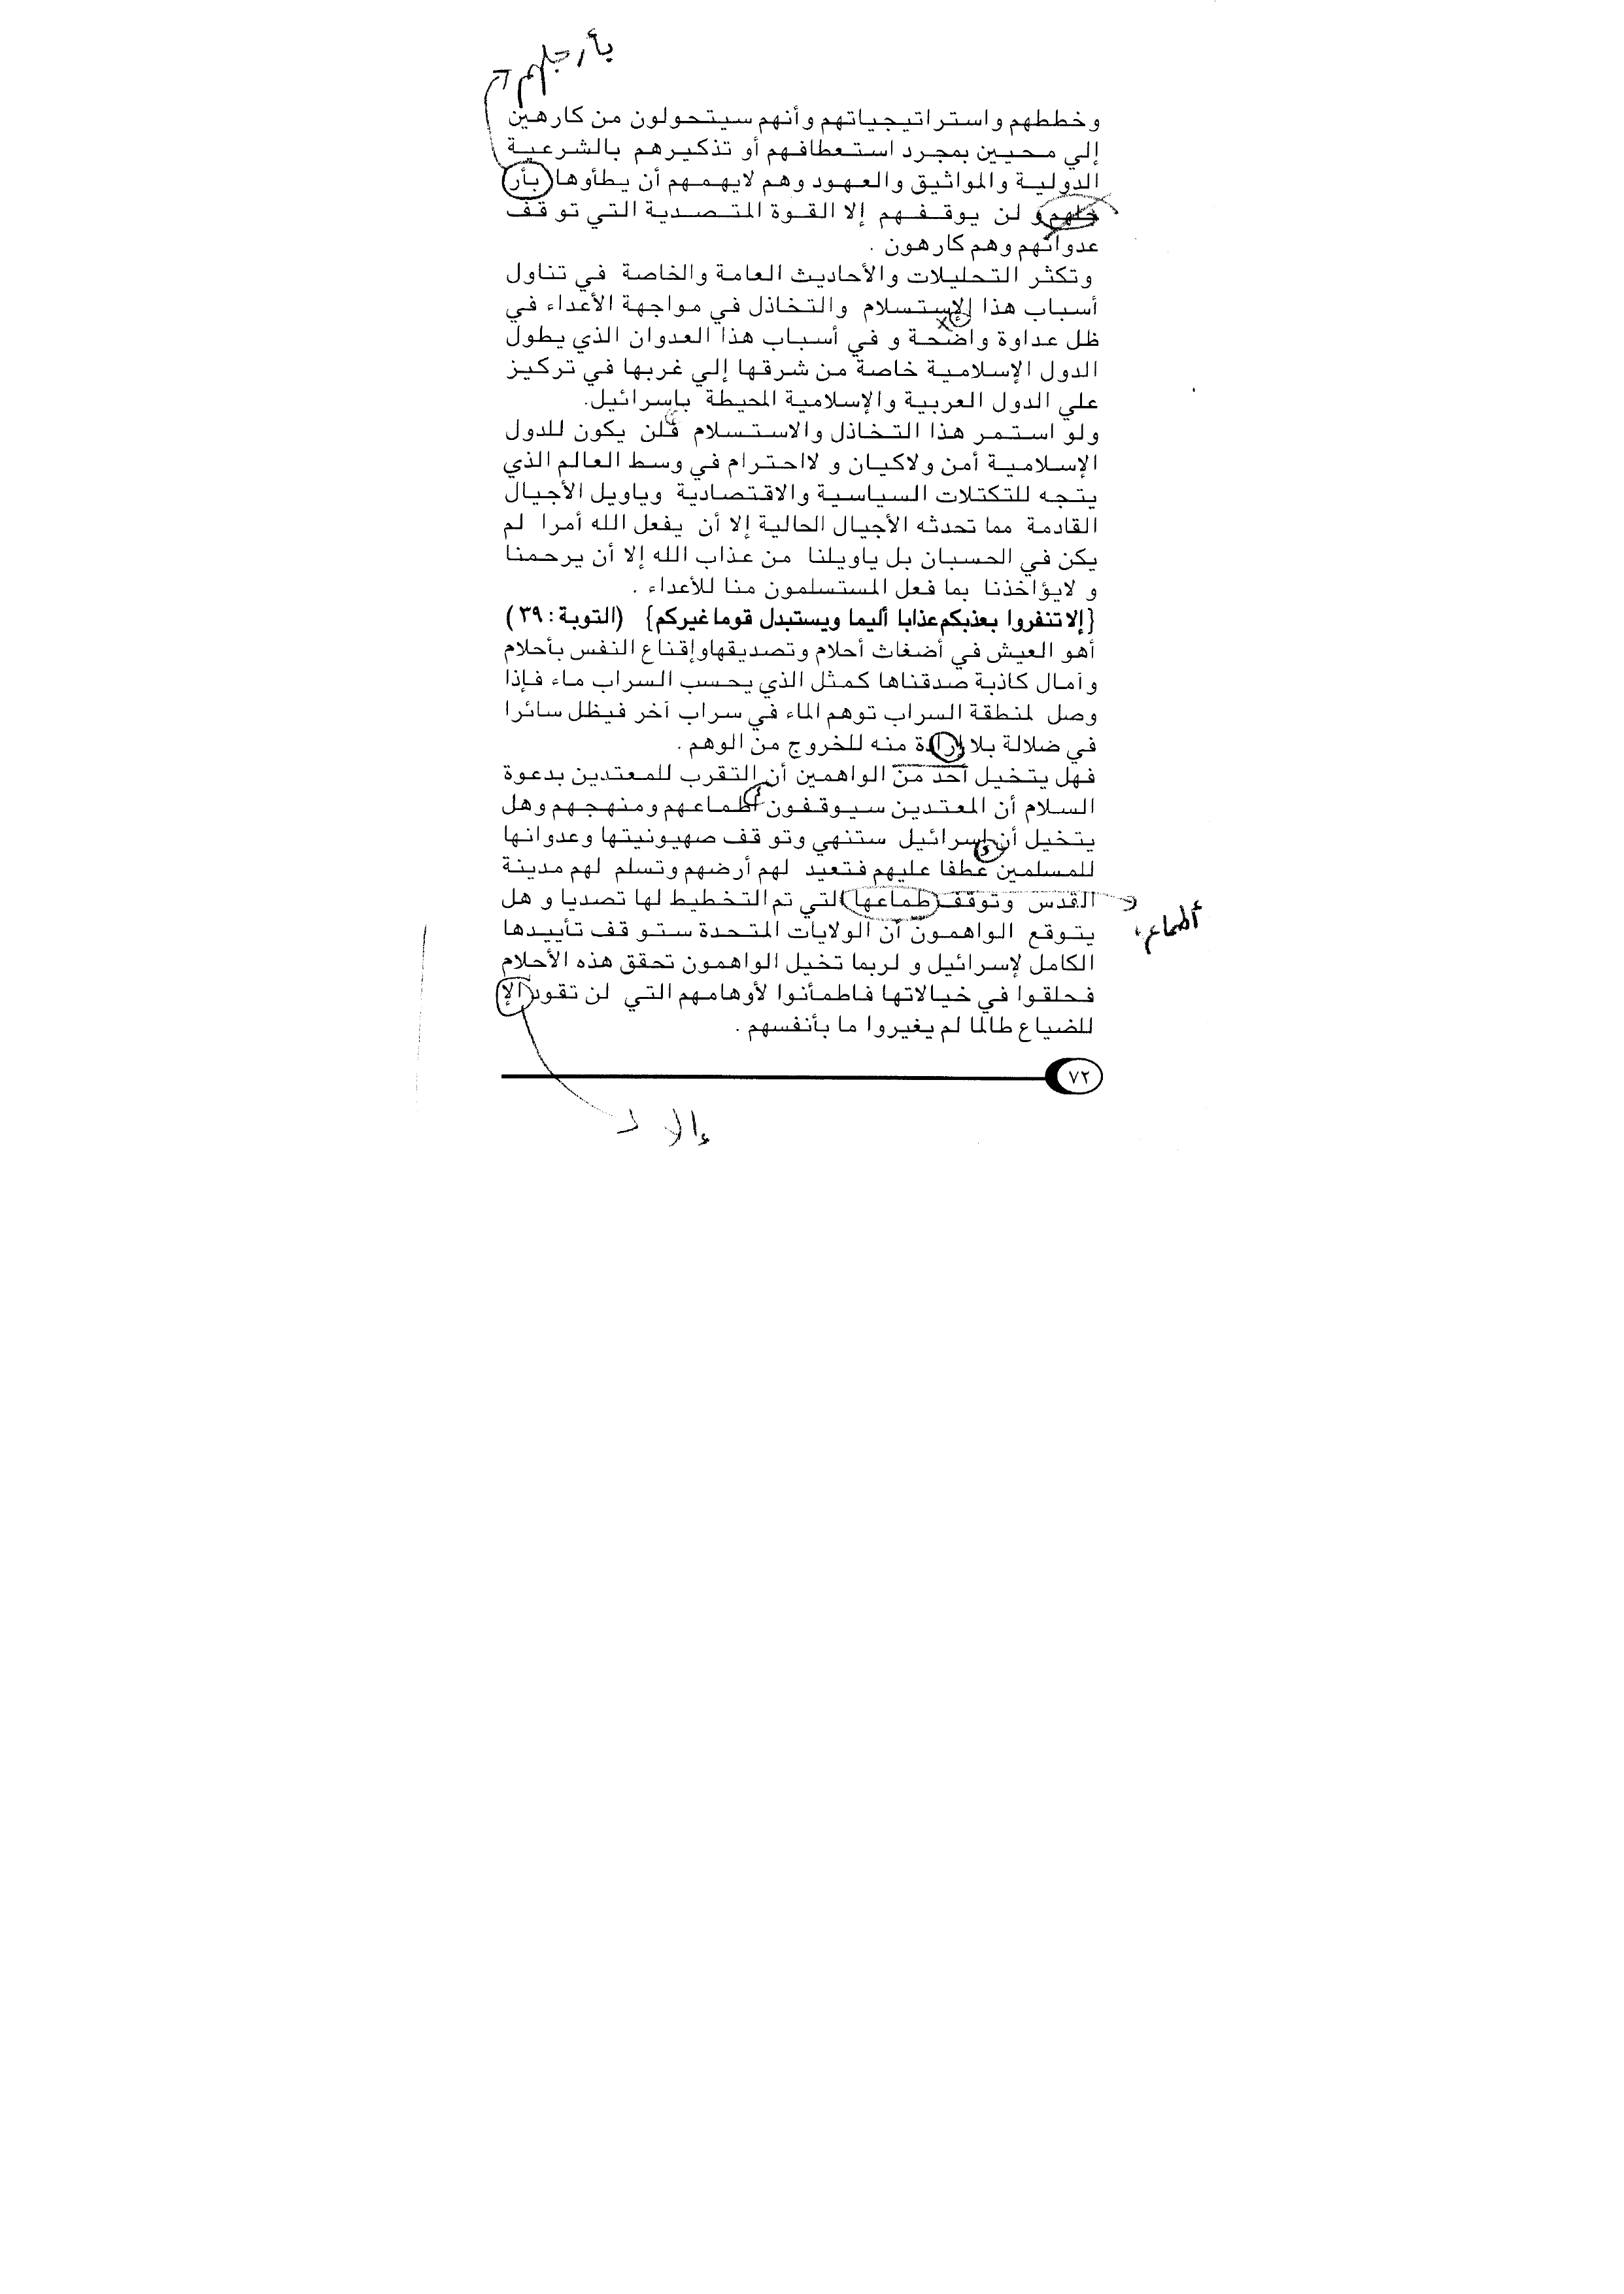 بأرجلهم
وخططهم واستراتيجياتهم وأنهم سيتحولون من كارهين
إلي محبين بمجرد استعطافهم أو تذكيرهم بالشرعية
الدولية والمواثيق والعهود وهم لايهمهم أن يطأوها بأر
جلهم و لن يوقفهم إلا القوة المتصدية التي توقف
عدوانهم وهم كارهون .
وتكثر التحليلات والأحاديث العامة والخاصة في تناول
أسباب هذا الإستسلام والتخاذل في مواجهة الأعداء في
ظل عداوة واضحة و في أسباب هذا العدوان الذي يطول
الدول الإسلامية خاصة من شرقها إلي غربها في تركيز
علي الدول العربية والإسلامية المحيطة بإسرائيل.
ولو استمر هذا التخاذل والاستسلام فلن يكون للدول
الإسلامية أمن ولاكيان و لااحترام في وسط العالم الذي
يتجه للتكتلات السياسية والاقتصادية وياويل الأجيال
القادمة مما تحدثه الأجيال الحالية إلا أن يفعل الله أمرا لم
يكن في الحسبان بل ياويلنا من عذاب الله إلا أن يرحمنا
و لايؤاخذنا بما فعل المستسلمون منا للأعداء .
{إلا تنفروا بعذبكم عذابا أليما ويستبدل قوما غيركم} (التوبة : ٣٩)
أهو العيش في أضغاث أحلام وتصديقهاوإقناع النفس بأحلام
وآمال كاذبة صدقناها كمثل الذي يحسب السراب ماء فإذا
وصل لمنطقة السراب توهم الماء في سراب آخر فيظل سائرا
في ضلالة بلا إرادة منه للخروج من الوهم .
فهل يتخيل أحد من الواهمين أن التقرب للمعتدين بدعوة
السلام أن المعتدين سيوقفون أطماعهم ومنهجهم وهل
يتخيل أن إسرائيل ستنهي وتوقف صهيونيتها وعدوانها
للمسلمين عطفا عليهم فتعيد لهم أرضهم وتسلم لهم مدينة
القدس وتوقف طماعها التي تم التخطيط لها تصديا و هل
أطماعها
يتوقع الواهمون أن الولايات المتحدة ستوقف تأييدها
الكامل لإسرائيل و لربما تخيل الواهمون تحقق هذه الأحلام
فحلقوا في خيالاتها فاطمأنوا لأوهامهم التي لن تقود إلا
للضياع طالما لم يغيروا ما بأنفسهم .
٧٢
إلا